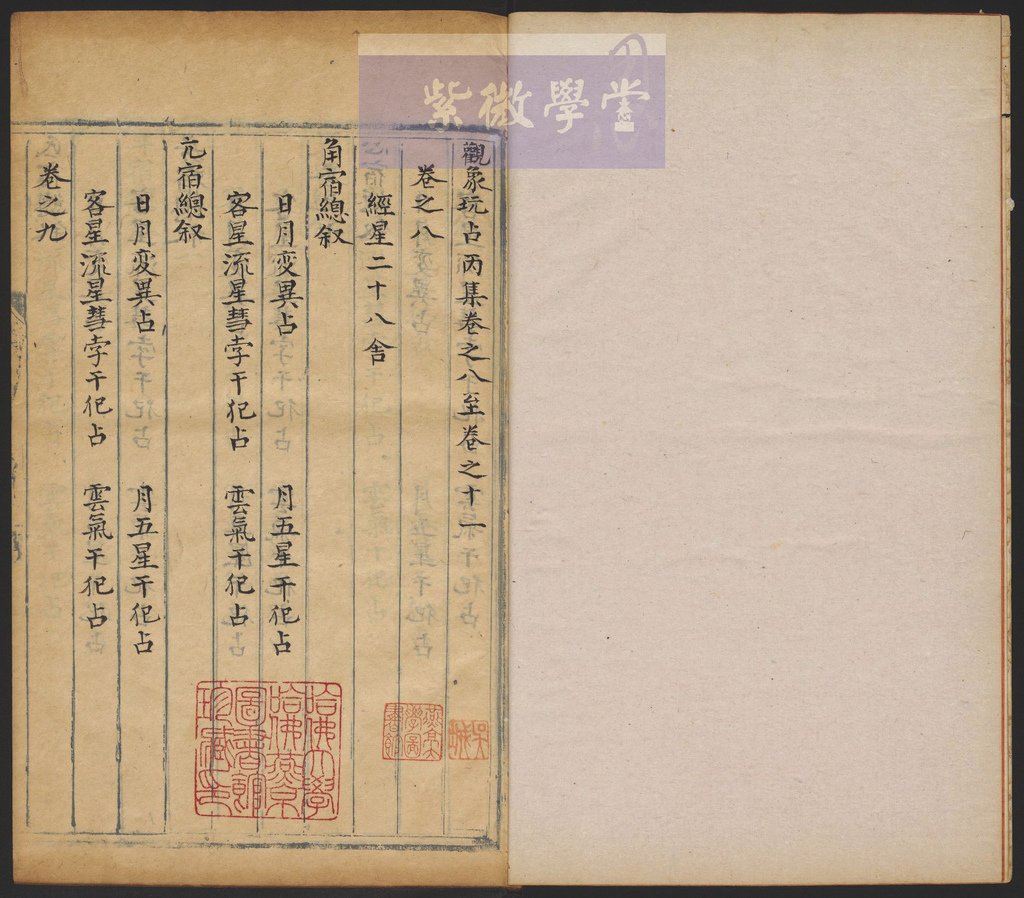 紫微學堂
觀象玩占丙集卷之八至卷之十一
卷之八
經星二十八舍
角宿總叙
日月変異占 月五星干犯占
客星流星彗孛干犯占 雲氣干犯占
亢宿總叙
日月変異占 月五星干犯占
客星流星彗孛干犯占 雲氣干犯占
卷之九
哈佛大學
哈佛燕京
圖書館
珍藏印
燕京大
學圖
書館